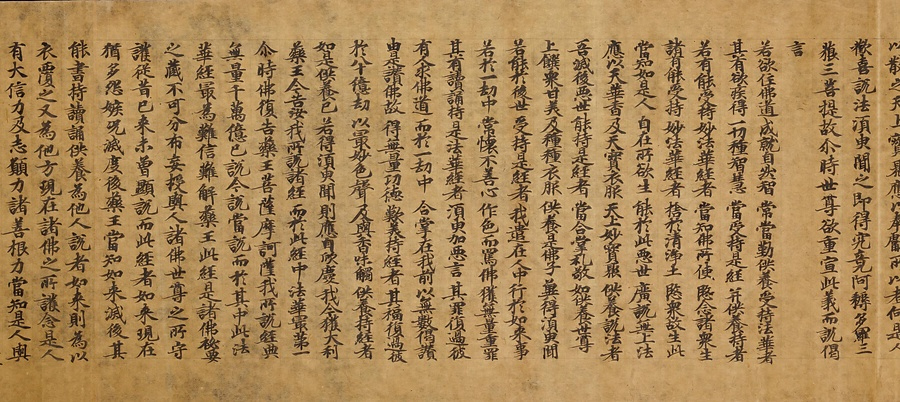 以散之天上寶聚應以奉獻所以者何是人
歡喜說法須臾聞之即得究竟阿耨多羅三
藐三菩提故尒時世尊欲重宣此義而說偈
言
若欲住佛道 成就自然智 常當勤供養 受持法華者
其有欲疾得 一切種智慧 當受持是經 并供養持者
若有能受持 妙法華經者 當知佛所使 愍念諸眾生
諸有能受持 妙法華經者 捨於清淨土 愍眾故生此
當知如是人 自在所欲生 能於此惡世 廣說無上法
應以天華香 及天寶衣服 天上妙寶聚 供養說法者
吾滅後惡世 能持是經者 當合掌礼敬 如供養世尊
上饌眾甘美 及種種衣服 供養是佛子 冀得須臾聞
若能於後世 受持是經者 我遣在人中 行於如來事
若於一劫中 常懷不善心 作色而罵佛 獲無量重罪
其有讀誦持 是法華經者 須臾加惡言 其罪復過彼
有人求佛道 而於一劫中 合掌在我前 以無數偈讚
由是讚佛故 得無量功德 歎美持經者 其福復過彼
於八十億劫 以最妙色聲 及與香味觸 供養持經者
如是供養已 若得須臾聞 則應自欣慶 我今獲大利
藥王今告汝 我所說諸經 而於此經中 法華最第一
尒時佛復告藥王菩薩摩訶薩我所說經典
無量千萬億已說今說當說而於其中此法
華經最為難信難解藥王此經是諸佛秘要
之藏不可分布妄授與人諸佛世尊之所守
護從昔已來未曾顯說而此經者如來現在
猶多怨嫉況滅度後藥王當知如來滅後其
能書持讀誦供養為他人說者如來則為以
衣覆之又為他方現在諸佛之所護念是人
有大信力及志願力諸善根力當知是人與